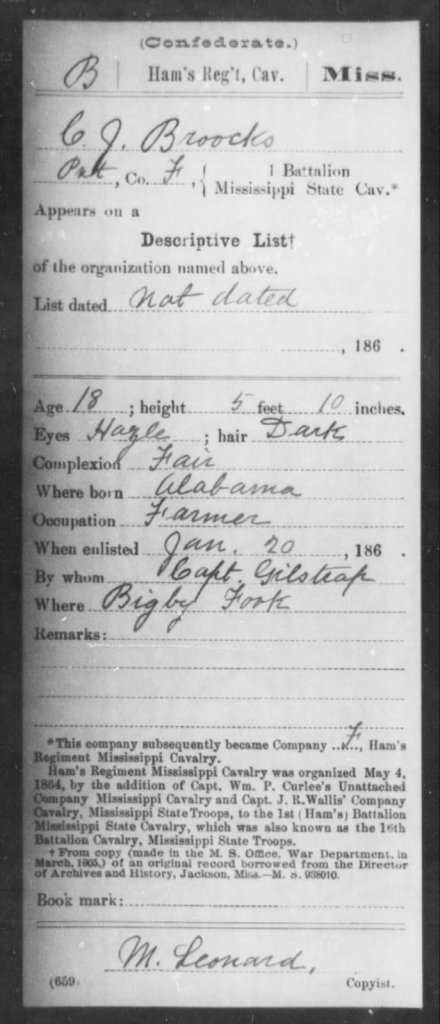 (Confederate.)
B | Ham's Reg't, Cav. | Miss.
C. J. Broocks
Pvt, Co. F, { 1 Battalion
Mississippi State Cav.*
Appears on a
Descriptive List†
of the organization named above.
List dated Not dated
, 186 .
Age 18 ; height 5 feet 10 inches.
Eyes Hazle ; hair Dark
Complexion Fair
Where born Alabama
Occupation Farmer
When enlisted Jan. 20 , 186 .
By whom Capt. Gilstrap
Where Bigby Fook
Remarks:
*This company subsequently became Company F, Ham's
Regiment Mississippi Cavalry.
Ham's Regiment Mississippi Cavalry was organized May 4,
1864, by the addition of Capt. Wm. P. Curlee's Unattached
Company Mississippi Cavalry and Capt. J. R. Wallis' Company
Cavalry, Mississippi State Troops, to the 1st (Ham's) Battalion
Mississippi State Cavalry, which was also known as the 16th
Battalion Cavalry, Mississippi State Troops.
† From copy (made in the M. S. Office, War Department, in
March, 1905,) of an original record borrowed from the Director
of Archives and History, Jackson, Miss.—M. S. 938010.
Book mark:
M. Leonard,
(659) Copyist.